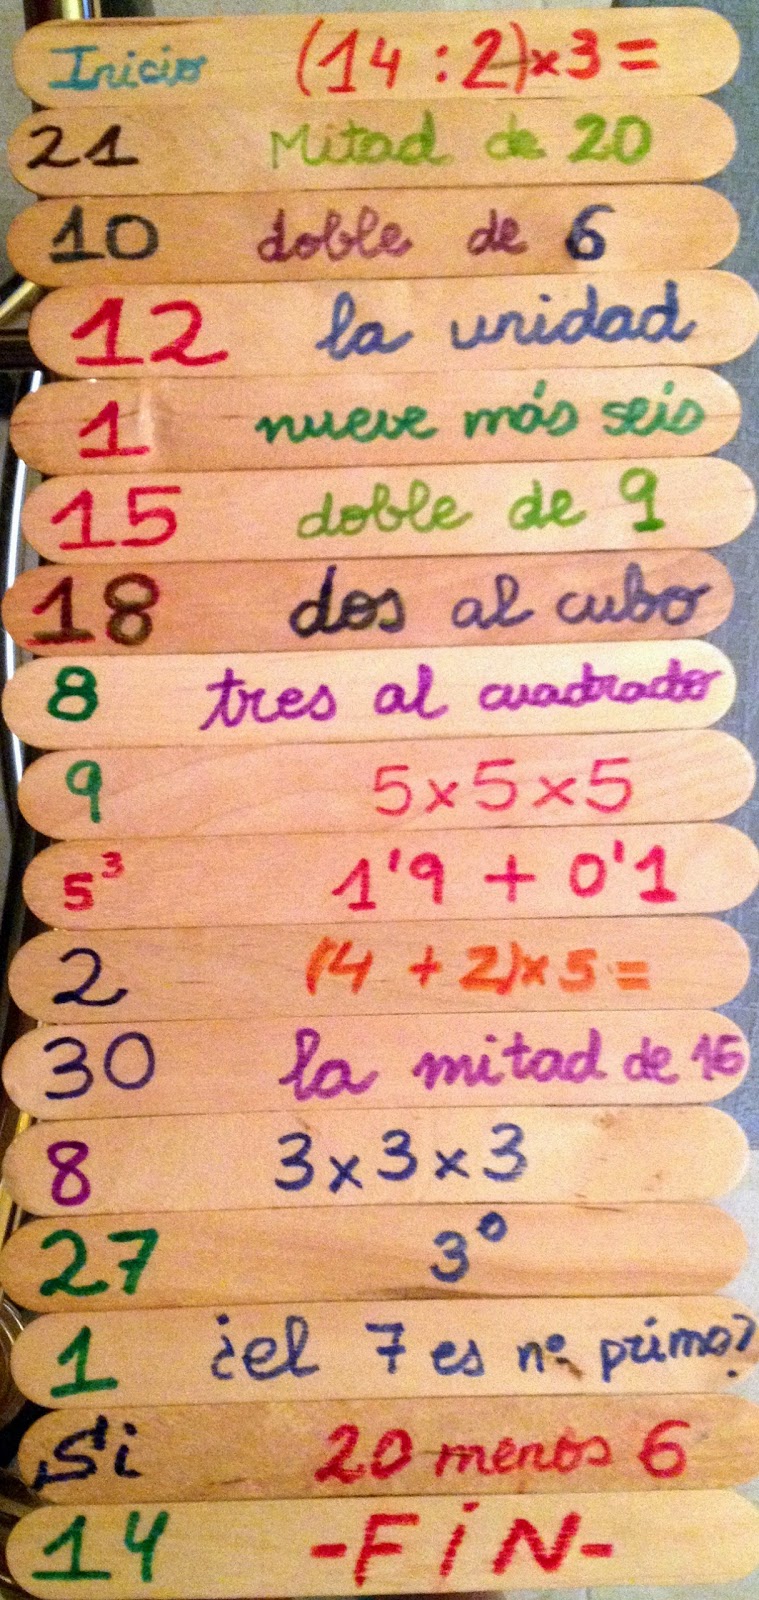 Inicio (14 : 2)x3 =
21 Mitad de 20
10 doble de 6
12 la unidad
1 nueve más seis
15 doble de 9
18 dos al cubo
8 tres al cuadrado
9 5x5x5
5³ 1'9 + 0'1
2 (4 + 2)x5 =
30 la mitad de 16
8 3x3x3
27 3⁰
1 ¿el 7 es nº primo?
Si 20 menos 6
14 -FiN-